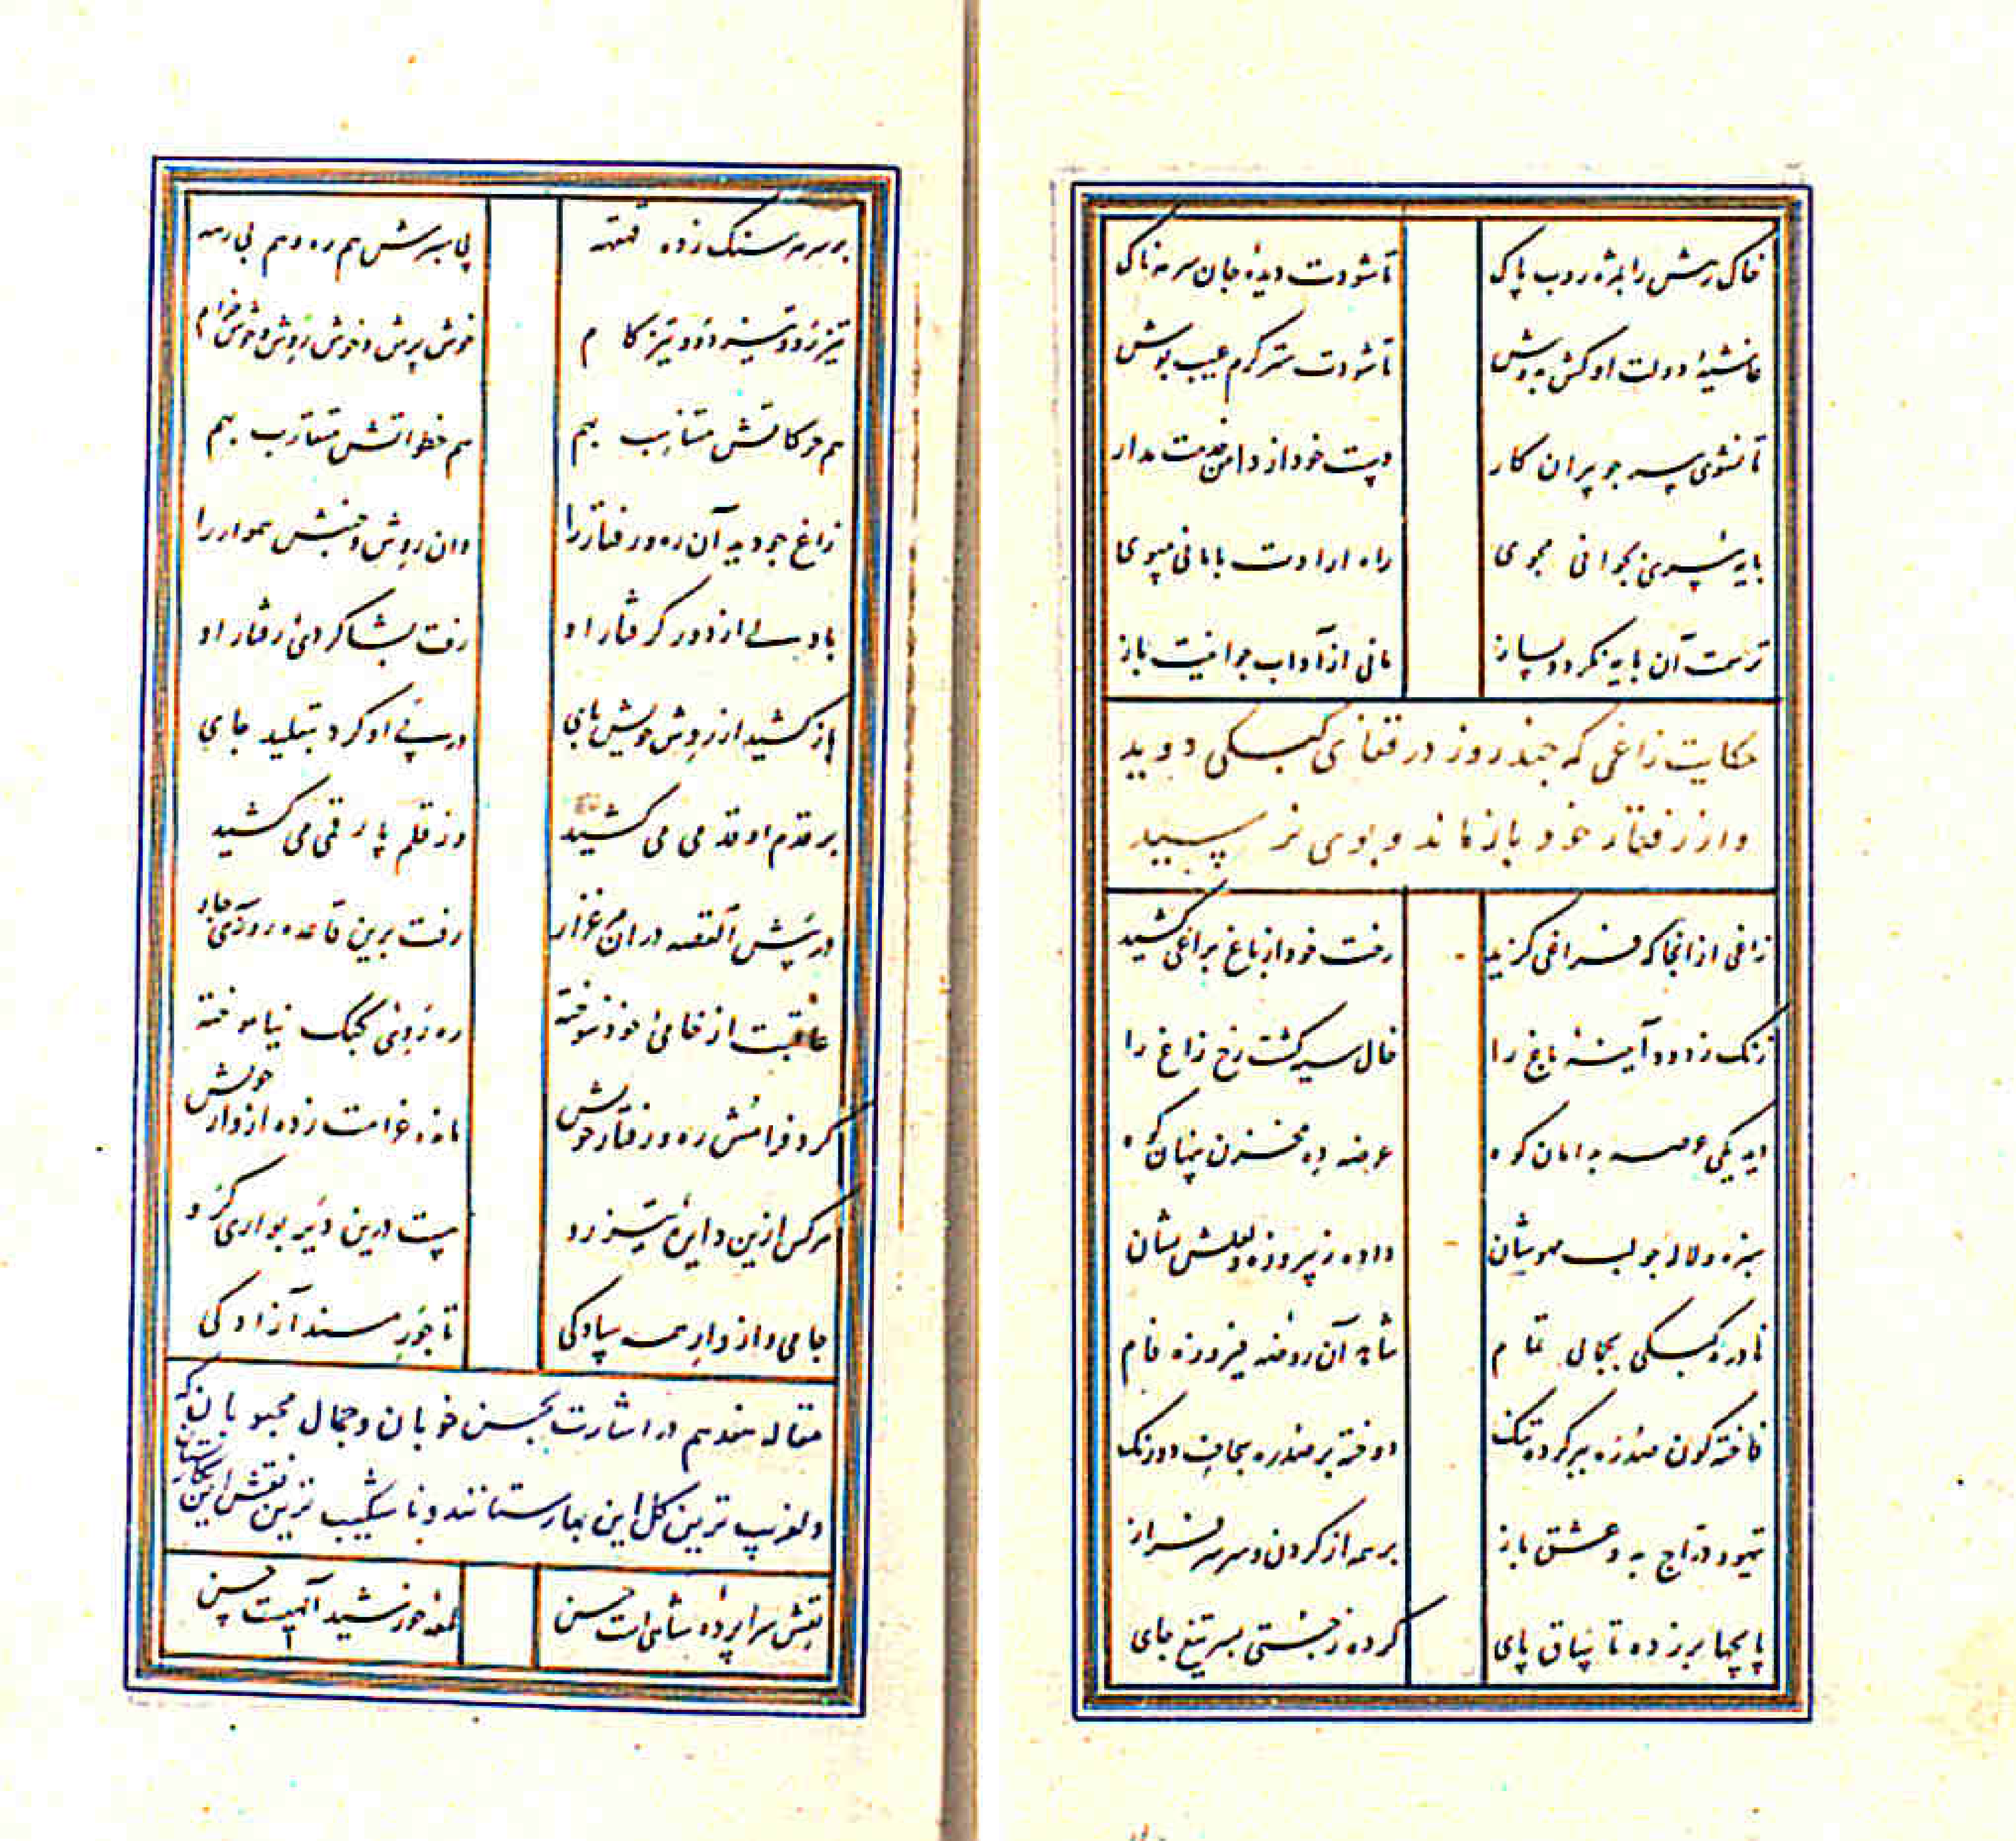 خاک رهش را بمژه روب پاک تا شودت دیدۀ جان سرمه ناک
غاشیۀ دولت او کش بدوش تا شودت ستر کرم عیب پوش
تا نشوی پیر جو پیران کار دست خود از دامن خدمت مدار
پایۀ پیری بجوانی مجوی راه ارادت بامانی مپوی
ترسمت آن پایه نکردد بساز مانی از آداب جوانیت باز
حکایت زاغی که جند روز در قفای کبکی دوید
و از رفتار خود باز ماند و بوی نرسید
زاغی از انجا که فراغی کزید رخت خود از باغ براغی کشید
زنک زدود آینۀ باغ را خال سیه کشت رخ زاغ را
دید یکی عرصه بدامان کوه عرضه ده مخزن پنهان کوه
سبزه و لاله جو لب مهوشان داده ز پیروزه و لعلش نشان
نادره کبکی بجمال تمام شاهد آن روضه فیروزه فام
فاخته کون صدره ببر کرده تنک دوخته بر صدره سجاف دورنک
تیهو و دراج بدو عشق باز بر همه از کردن و سر سرفراز
پایچها بر زده تا ساق پای کرده ز جستی بسر تیغ جای
بر سر هر سنک زده قهقهه پی سپرش هم ره و هم بی رهه
تیز رو و تیز دو و تیز کام خوش پرش و خوش روش و خوش خرام
هم حرکاتش متناسب بهم هم خطواتش متقارب بهم
زاغ جو دید آن ره و رفتار را وان روش و جنبش هموار را
با دلی از دور کرفتار او رفت بشاکردی رفتار او
باز کشید از روش خویش پای در پی او کرد بتقلید جای
بر قدم او قدمی می کشید وز قلم پا رقمی می کشید
در پیش القصه دران مرغزار رفت برین قاعده روزی جار
عاقبت از خامی خود سوخته ره روی کبک نیاموخته
کرد فرامش ره و رفتار خویش ماند غرامت زده از کار خویش
هر کس ازین دایره تیز رد
جامی و از دار همه سادکی تا جور مسند آزادکی
مقاله هفدهم در اشارت بحسن خوبان و جمال محبوبان که
دلفریب ترین کل این بهارستانند و ناشکیب ترین نقش این نکارستان
نقش سراپرده شاهی است حسن لمعۀ خورشید الهیست حسن